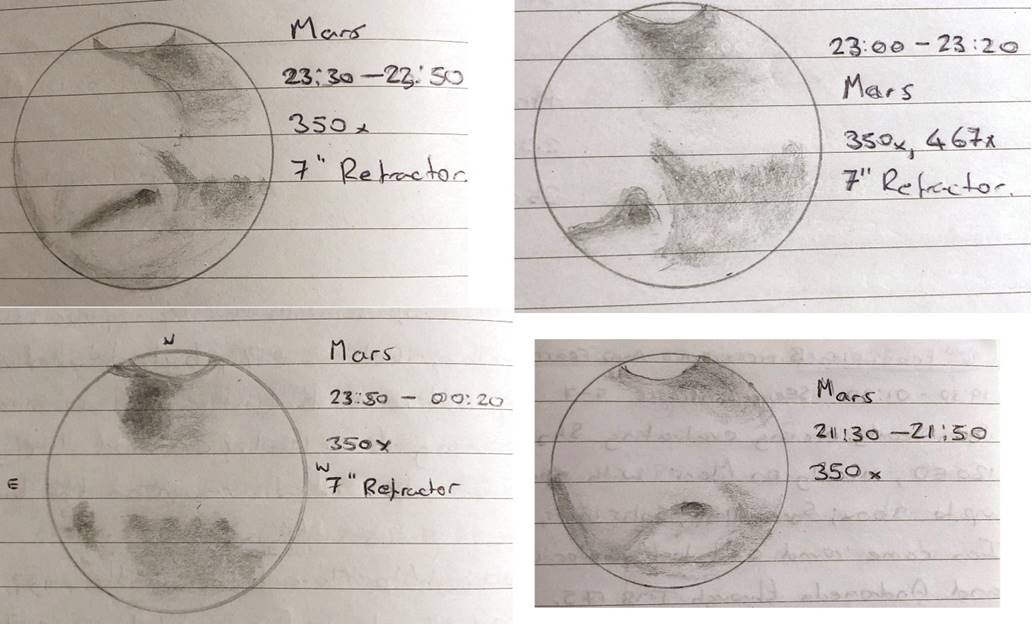 Mars
23:30 – 23:50
350x
7" Refractor
23:00 – 23:20
Mars
350x, 467x
7" Refractor.
N
Mars
23:50 – 00:20
350x
E
W
7" Refractor
Mars
21:30 – 21:50
350x